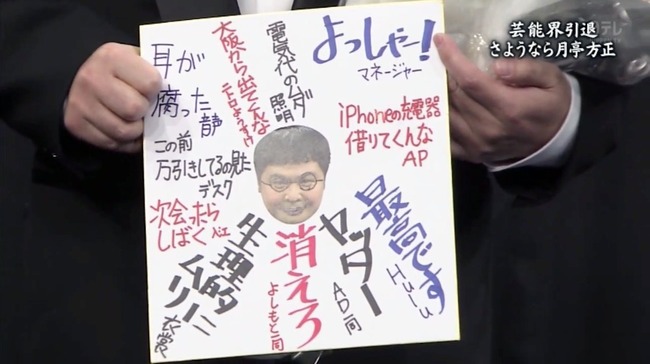 芸能界引退
さようなら月亭方正
よっしゃー!
マネージャー
電気代のムダ
照明
大阪から出てくんな
テロようすけ
耳が
腐った
静
この前
万引きしてるの見た
デスク
次会ったら
しばく
iPhoneの充電器
借りてくんな
AP
最高です
Hulu
ヤッター
AD一同
消えろ
よしもと一同
生理的に
ムリー
衣裳